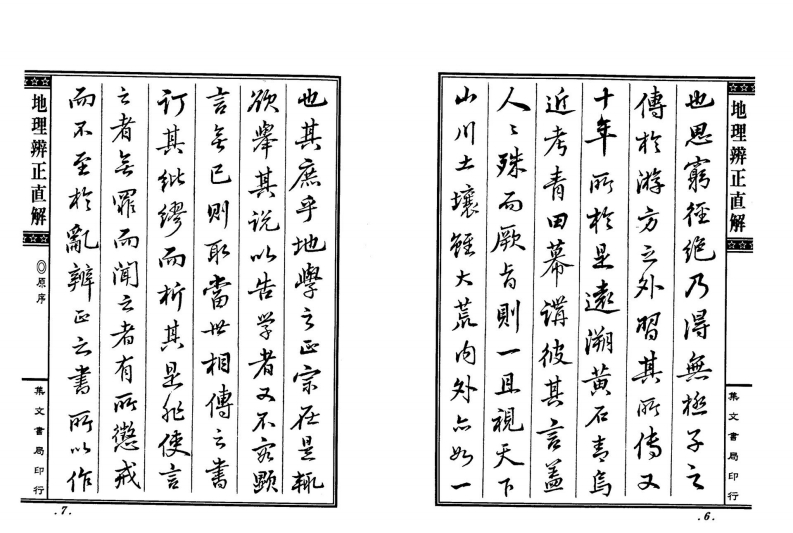 地理辨正直解
集文書局印行
也思窮徑絕乃得無極子之
傳於游方之外習其所傳又
十年所於是遠溯黃石青烏
近考青田幕講彼其言蓋
人人殊而厥旨則一且視天下
山川土壤雖大荒內外亦如一
.6.
也其庶乎地學之正宗在是輒
欲舉其說以告学者又不容顯
言無已則取當世相傳之書
訂其紕繆而析其是非使言
之者無罪而聞之者有所懲戒
而不至於亂辨正之書所以作
地理辨正直解
◎原序
集文書局印行
.7.